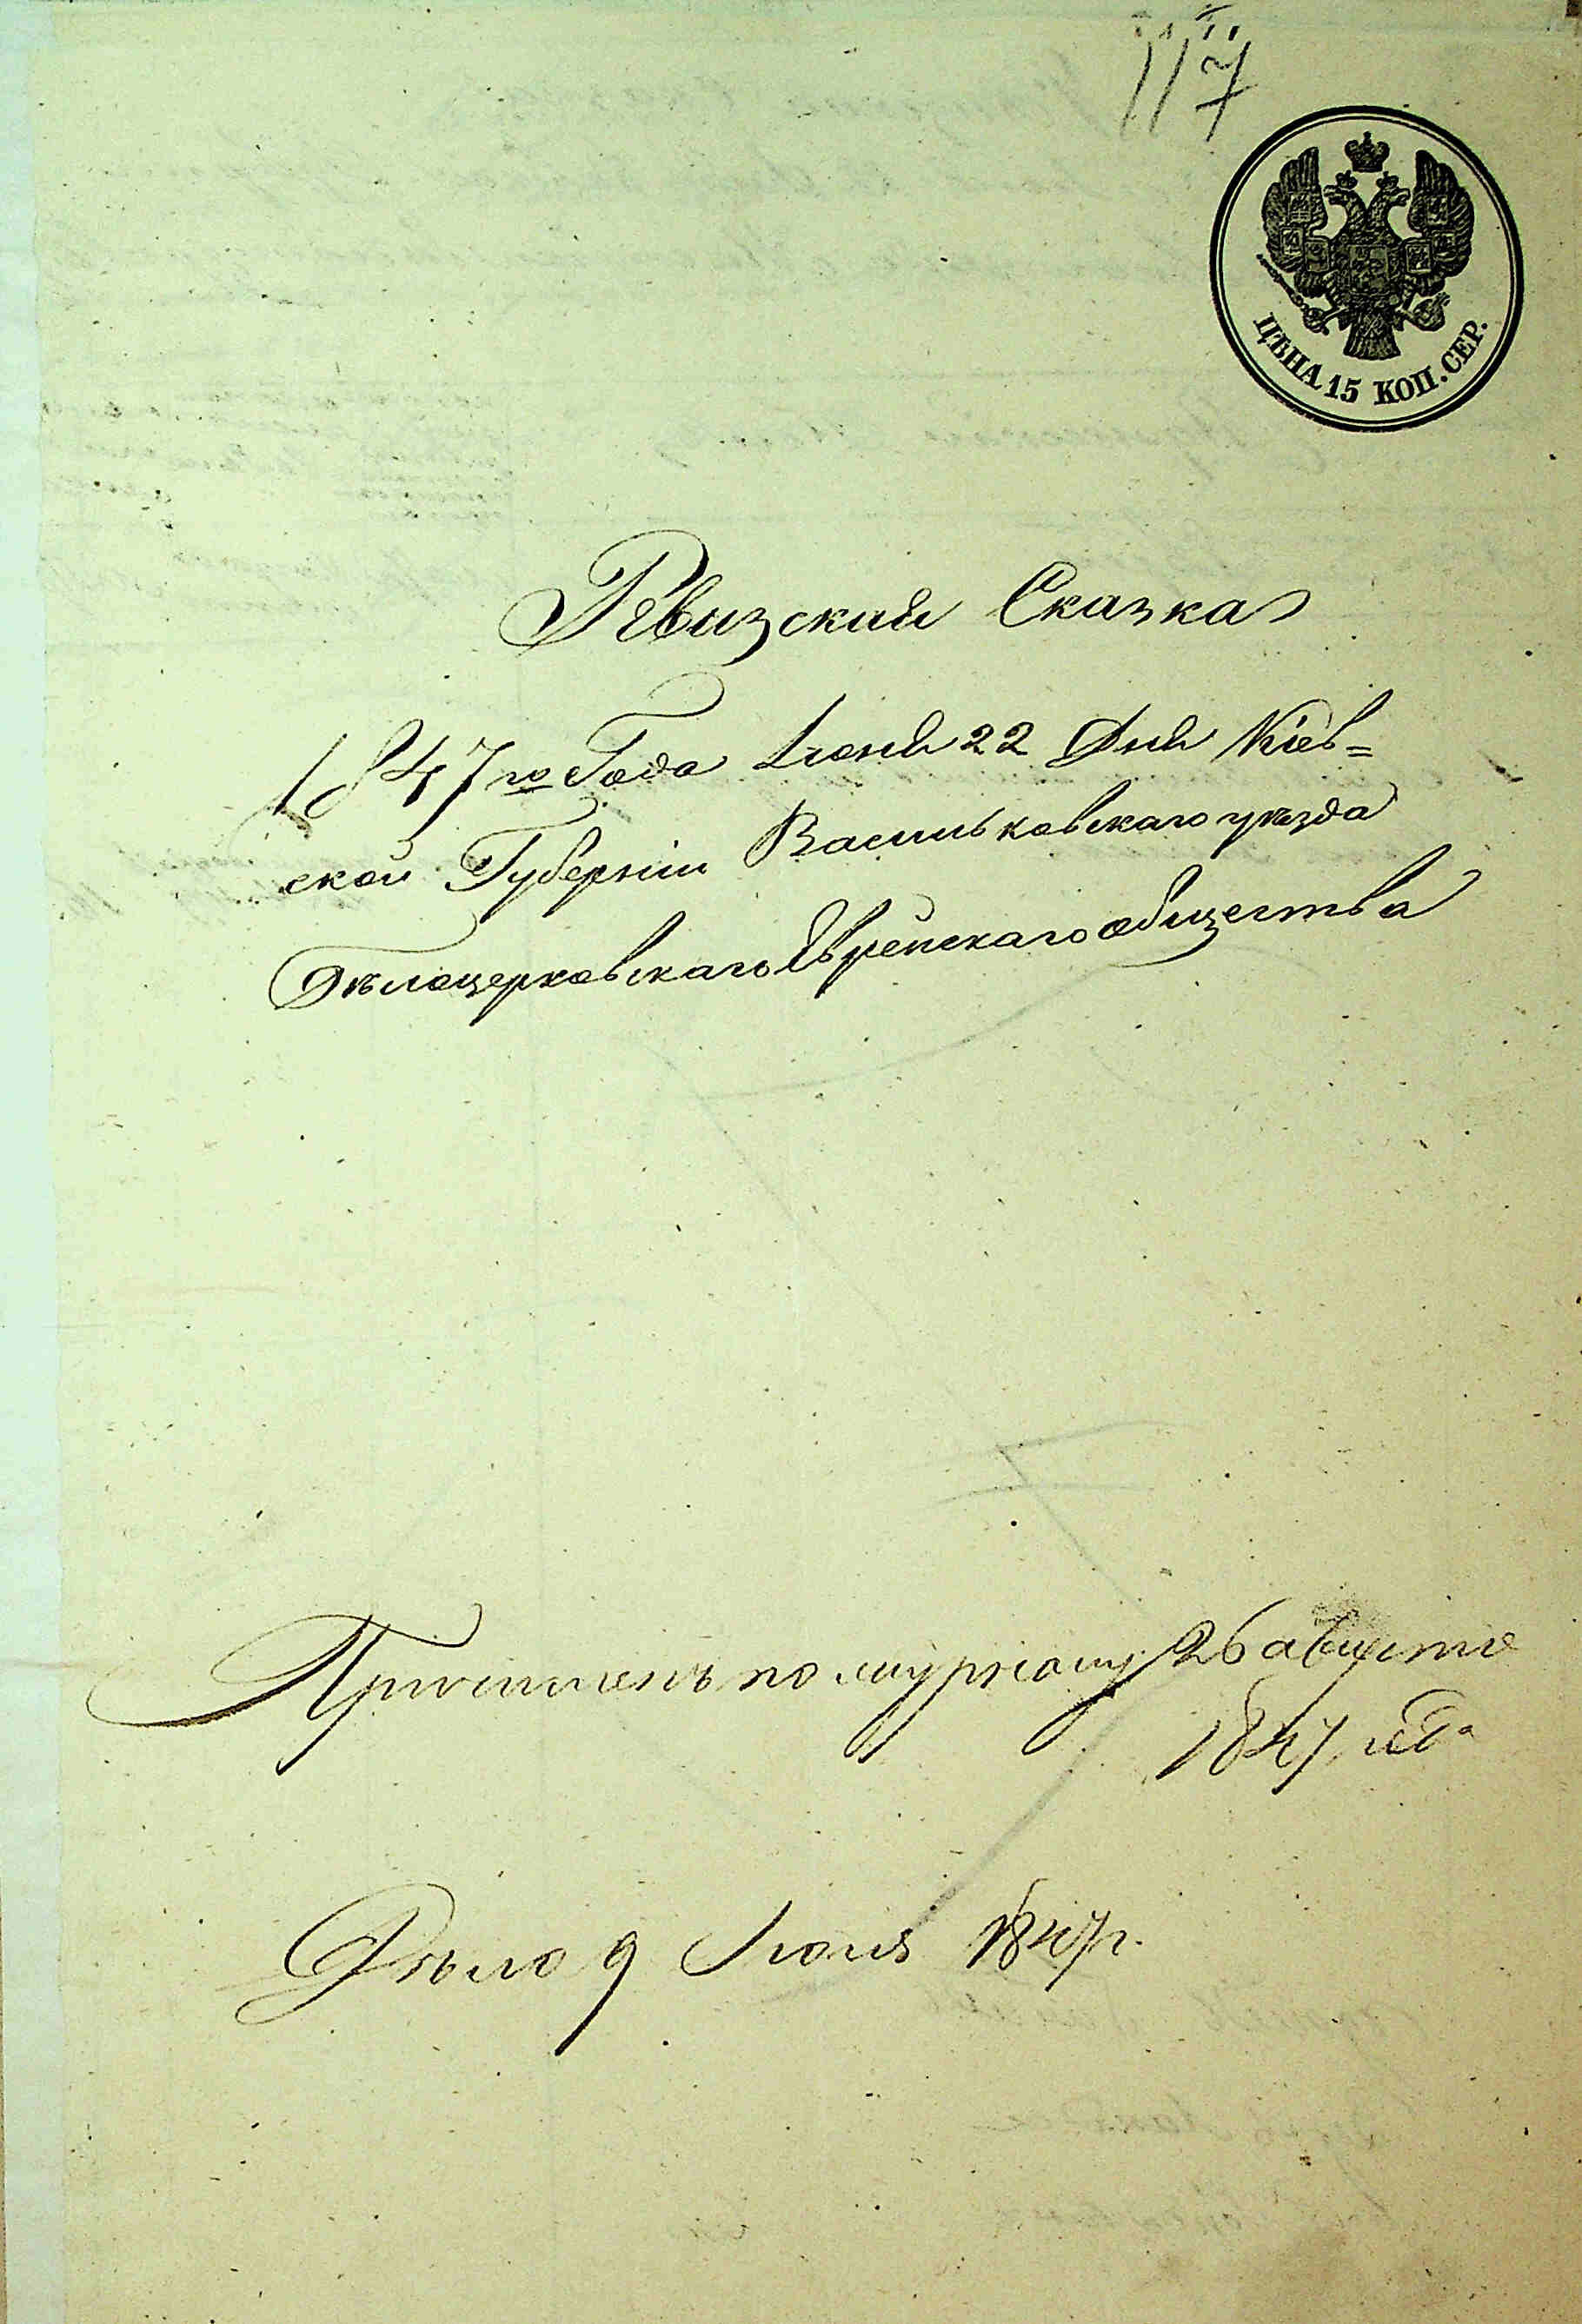 117
ЦѢНА 15 КОП. СЕР.
Ревизский Сказка
1847го Года Іюня 22 Дня Кіев=
ской Губерніи Васильковскаго уѣзда
Бѣлоцерковскаго Еврейскаго общества
по 26 августа
1847 года
9 Іюля 1847г.